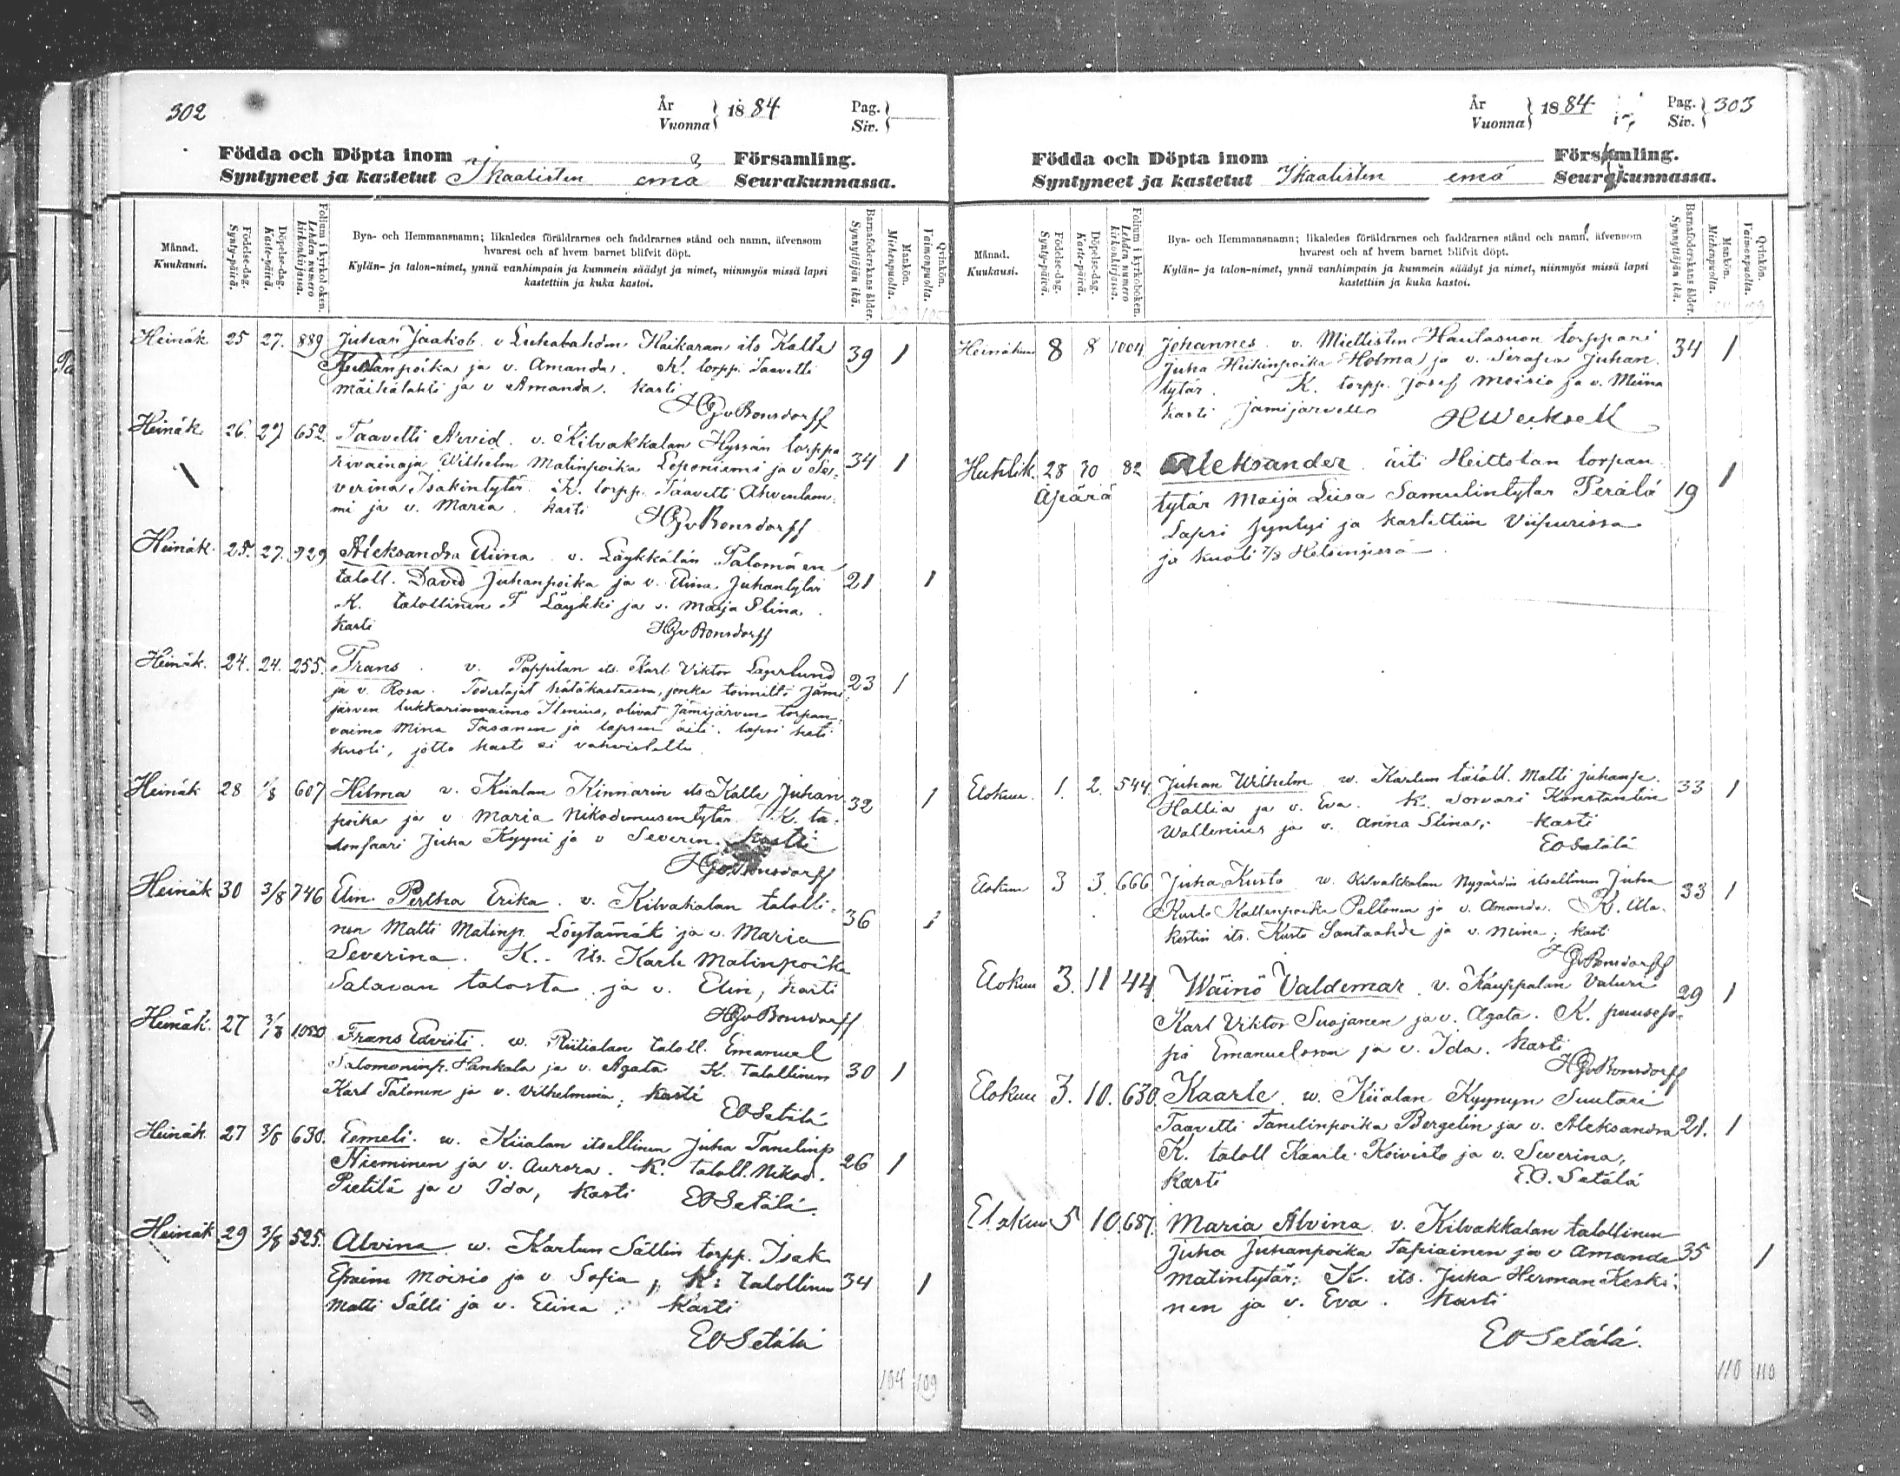 302
År
Vuonna } 1884
Pag.
Siv.
Födda och Döpta inom Församling.
Syntyneet ja kastetut Ikaalisten emä Seurakunnassa.
Månad.
Kuukausi.
Födelse-dag.
Synty-päivä.
Döpelse-dag.
Kaste-päivä.
Folium i kyrkoboken.
Lehden numero kirkonkirjassa.
Bya- och Hemmansnamn; likaledes föräldrarnes och faddrarnes stånd och namn, äfvensom
hvarest och af hvem barnet blifvit döpt.
Kylän- ja talon-nimet, ynnä vanhimpain ja kummein säädyt ja nimet, niinmyös missä lapsi
kastettiin ja kuka kastoi.
Barnaföderskans ålder.
Synnyttäjän ikä.
Mankön.
Miehenpuolta.
Qvinkön.
Vaimonpuolta.
Heinäk 25 27. 889 Juhan Jaakob. v Luhalahdin Haikaran its Kalle 39 1
Juhanpoika ja v. Amanda. K. torpp. Taavetti
Mäihälahti ja v Amanda. Kasti
HGvBonsdorff
Heinäk. 26. 27 652. Taavetti Arvid. v. Kilvakkalan Hyssän torppa 34 1
Wilhelm Matinpoika Leponiemi ja v Se-
verina Isakintytär. K. torpp. Taavetti Ahvenlam-
mi ja v. Maria. Kasti
HGvBonsdorff
Heinäk. 25. 27. 929 Aleksandra Eliina. v. Läykkälän Palomäen 21 1
taloll. David Juhanpoika ja v. Eliina Juhantytär
K. talollinen F Läykki ja v. Maija Stina.
Kasti HGvBonsdorff
Heinäk. 24. 24. 255. Frans. v. Pappilan its. Karl Viktor Lagerlund 23 1
ja v. Rosa. Todistajat hätäkasteessa, jonka toimitti Jämi-
järven lukkarinvaimo Stenius, olivat Jämijärven torpan-
vaimo Mina Tasanen ja lapsen äiti. Lapsi heti
kuoli, jotta kaste ei vahvistettu.
Heinäk 28 1/8 607 Hilma v. Kiialan Kinnarin its Kalle Juhan- 32 1
poika ja v Maria Nikodemuxentytär. K. ta-
lonsaari Juha Kyyni ja v Severin. Kasti
HGvBonsdorff
Heinäk 30 3/8 746 Elin Pertha Erika. v. Kilvakkalan talolli- 36 1
nen Matti Matinp. Löytämäk ja v. Maria
Severina. K. its. Karle Matinpoika
Salavan talosta ja v. Elin, kasti
HGvBonsdorff
Heinäk. 27 3/8 1050 Frans Edvisti. w. Riitialan taloll. Emanuel 30 1
Salomoninp. Hankala ja v. Agata K. talollinen
Karl Talonen ja v. Vilhelmina; kasti
EOSetälä
Heinäk. 27 3/8 630. Eemeli. w. Kiialan itsellinen Juha Tanelinp 26 1
Nieminen ja v. Aurora. K. taloll. Nikod.
Pietilä ja v Ida, kasti EOSetälä.
Heinäk 29 3/8 525. Alvina. w. Kartun Sällin torpp. Isak 34 1
Efraim Moisio ja v Sofia, K: talollinen
Matti Sälli ja v. Elina; Kasti
EOSetälä
104 109
År
Vuonna } 1884
Pag.
Siv. } 303
Födda och Döpta inom Församling.
Syntyneet ja kastetut Ikaalisten emä Seurakunnassa.
Månad.
Kuukausi.
Födelse-dag.
Synty-päivä.
Döpelse-dag.
Kaste-päivä.
Folium i kyrkoboken.
Lehden numero kirkonkirjassa.
Bya- och Hemmansnamn; likaledes föräldrarnes och faddrarnes stånd och namn, äfvensom
hvarest och af hvem barnet blifvit döpt.
Kylän- ja talon-nimet, ynnä vanhimpain ja kummein säädyt ja nimet, niinmyös missä lapsi
kastettiin ja kuka kastoi.
Barnaföderskans ålder.
Synnyttäjän ikä.
Mankön.
Miehenpuolta.
Qvinkön.
Vaimonpuolta.
Heinäkuu 8 8 1004 Johannes. v. Miettisten Hautasuon torppari 34 1
Juha Heikinpoika Holma ja v. Serafia Juhan-
tytär. K. torpp. Josef Moisio ja v. Miina
kasti Jämijärvellä HWecksell
Huhtik. 28 30 82 Aleksander. äiti Heittolan torpan 19 1
Äpärä tytär Maija Liisa Samulintytär Perälä
Lapsi syntyi ja kastettiin Viipurissa
ja kuoli 7/8 Helsingissä.
Elokuu. 1. 2. 544 Juhan Wilhelm w. Kartun taloll. Matti Juhanp. 33 1
Hallia ja v. Eva. K. sorvari Konstantin
Wallenius ja v. Anna Stina; kasti
EOSetälä
Elokuu 3 3. 666 Juha Kusto w. Kilvakkalan Nygårdin itsellinen Juha 33 1
Kusto Kallenpoika Peltonen ja v. Amanda. K. Ala-
kestin its. Kusto Santaahde ja v. Mina; kasti
HGvBonsdorff
Elokuu 3. 11 44 Wäinö Valdemar v. Kauppalan Valuri 29 1
Karl Viktor Suojanen ja v. Agata. K. puusep-
pä Emanuelsson ja v. Ida. kasti
HGvBonsdorff
Elokuu 3. 10. 630. Kaarle w. Kiialan Kyynyn Suutari 21. 1
Taavetti Tanelinpoika Bergelin ja v. Aleksandra
K. taloll Kaarle Koivisto ja v. Severina,
kasti E.O. Setälä
Elokuu 5 10. 687. Maria Alvina v. Kilvakkalan talollinen 35 1
Juha Juhanpoika Tapiainen ja v Amanda
Matintytär: K. its. Juha Herman Keski-
nen ja v. Eva. Kasti
EOSetälä.
110 110